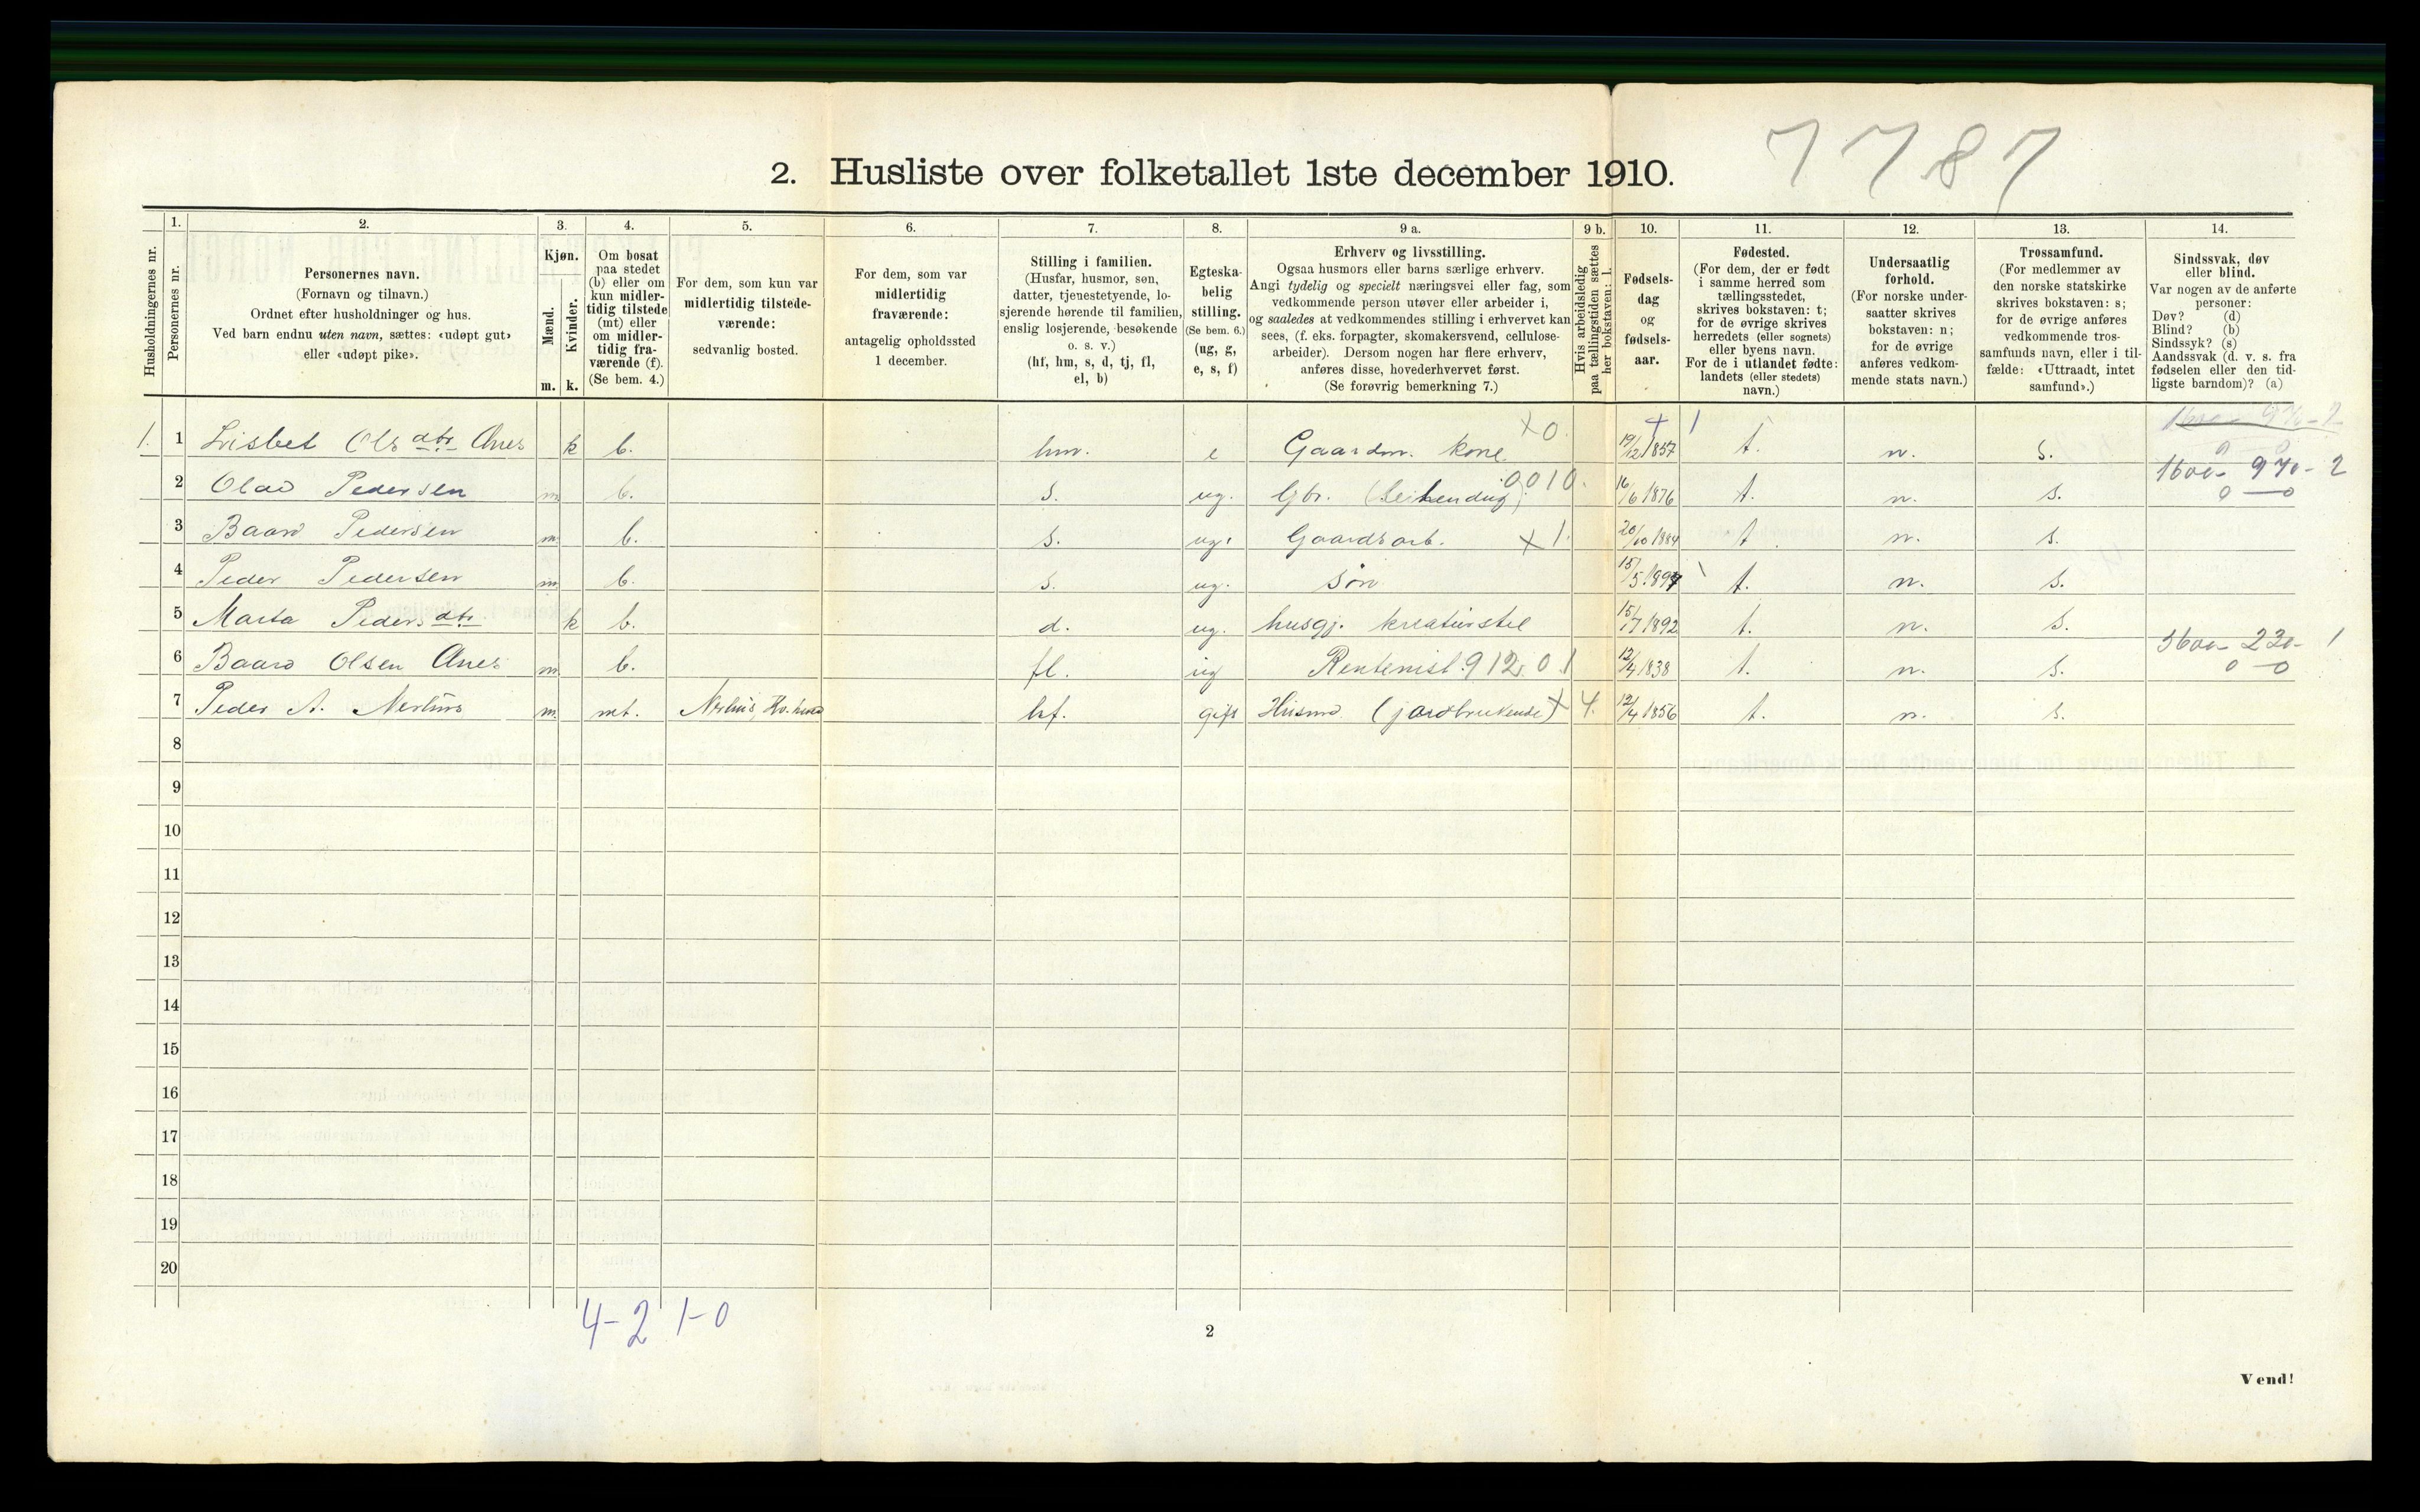 7787
2. Husliste over folketallet 1ste december 1910.
Husholdningernes nr.
1.
Personernes nr.
2.
Personernes navn.
(Fornavn og tilnavn.)
Ordnet efter husholdninger og hus.
Ved barn endnu uten navn, sættes: «udøpt gut»
eller «udøpt pike».
3.
Kjøn.
Mænd.
Kvinder.
m. k.
4.
Om bosat
paa stedet
(b) eller om
kun midler-
tidig tilstede
(mt) eller
om midler-
tidig fra-
værende (f).
(Se bem. 4.)
5.
For dem, som kun var
midlertidig tilstede-
værende:
sedvanlig bosted.
6.
For dem, som var
midlertidig
fraværende:
antagelig opholdssted
1 december.
7.
Stilling i familien.
(Husfar, husmor, søn,
datter, tjenestetyende, lo-
sjerende hørende til familien,
enslig losjerende, besøkende
o. s. v.)
(hf, hm, s, d, tj, fl,
el, b)
8.
Egteska-
belig
stilling.
(Se bem. 6.)
(ug, g,
e, s, f)
9 a.
Erhverv og livsstilling.
Ogsaa husmors eller barns særlige erhverv.
Angi tydelig og specielt næringsvei eller fag, som
vedkommende person utøver eller arbeider i,
og saaledes at vedkommendes stilling i erhvervet kan
sees, (f. eks. forpagter, skomakersvend, cellulose-
arbeider). Dersom nogen har flere erhverv,
anføres disse, hovederhvervet først.
(Se forøvrig bemerkning 7.)
9 b.
Hvis arbeidsledig
paa tællingstiden sættes
her bokstaven: l.
10.
Fødsels-
dag
og
fødsels-
aar.
11.
Fødested.
(For dem, der er født
i samme herred som
tællingsstedet,
skrives bokstaven: t;
for de øvrige skrives
herredets (eller sognets)
eller byens navn.
For de i utlandet fødte:
landets (eller stedets)
navn.)
12.
Undersaatlig
forhold.
(For norske under-
saatter skrives
bokstaven: n;
for de øvrige
anføres vedkom-
mende stats navn.)
13.
Trossamfund.
(For medlemmer av
den norske statskirke
skrives bokstaven: s;
for de øvrige anføres
vedkommende tros-
samfunds navn, eller i til-
fælde: «Uttraadt, intet
samfund».)
14.
Sindssvak, døv
eller blind.
Var nogen av de anførte
personer:
Døv? (d)
Blind? (b)
Sindssyk? (s)
Aandssvak (d. v. s. fra
fødselen eller den tid-
ligste barndom)? (a)
1. 1 Lisbet Olsdtr. k b. hm. e Gaardm. kone X 0. 19/12 1857 t. n. s.
2 Olav Pedersen m b. s. ug. Gbr. 0010. 16/6 1876 t. n. s. 1600- 970- 2
0 — 0
3 Baard Pedersen m b. s. ug. Gaardsarb. X 1. 20/10 1884 t. n. s.
4 Peder Pedersen m b. s. ug. søn t. n. s.
5 Marta Pedersdtr. k b. d. ug. husgj. kreaturstel 15/7 1892 t. n. s.
6 Baard Olsen m b. fl. ug Rentenist. 912. 0.1 12/4 1838 t. n. s. 3600- 230- 1
0 — 0
7 Peder A. Nerhus m mt. Nerhus, Kv. herred hf. gift Husmd. (jordbrukende) X 4. 12/4 1856 t. n. s.
8
9
10
11
12
13
14
15
16
17
18
19
20
4-2 1-0
2
Vend!